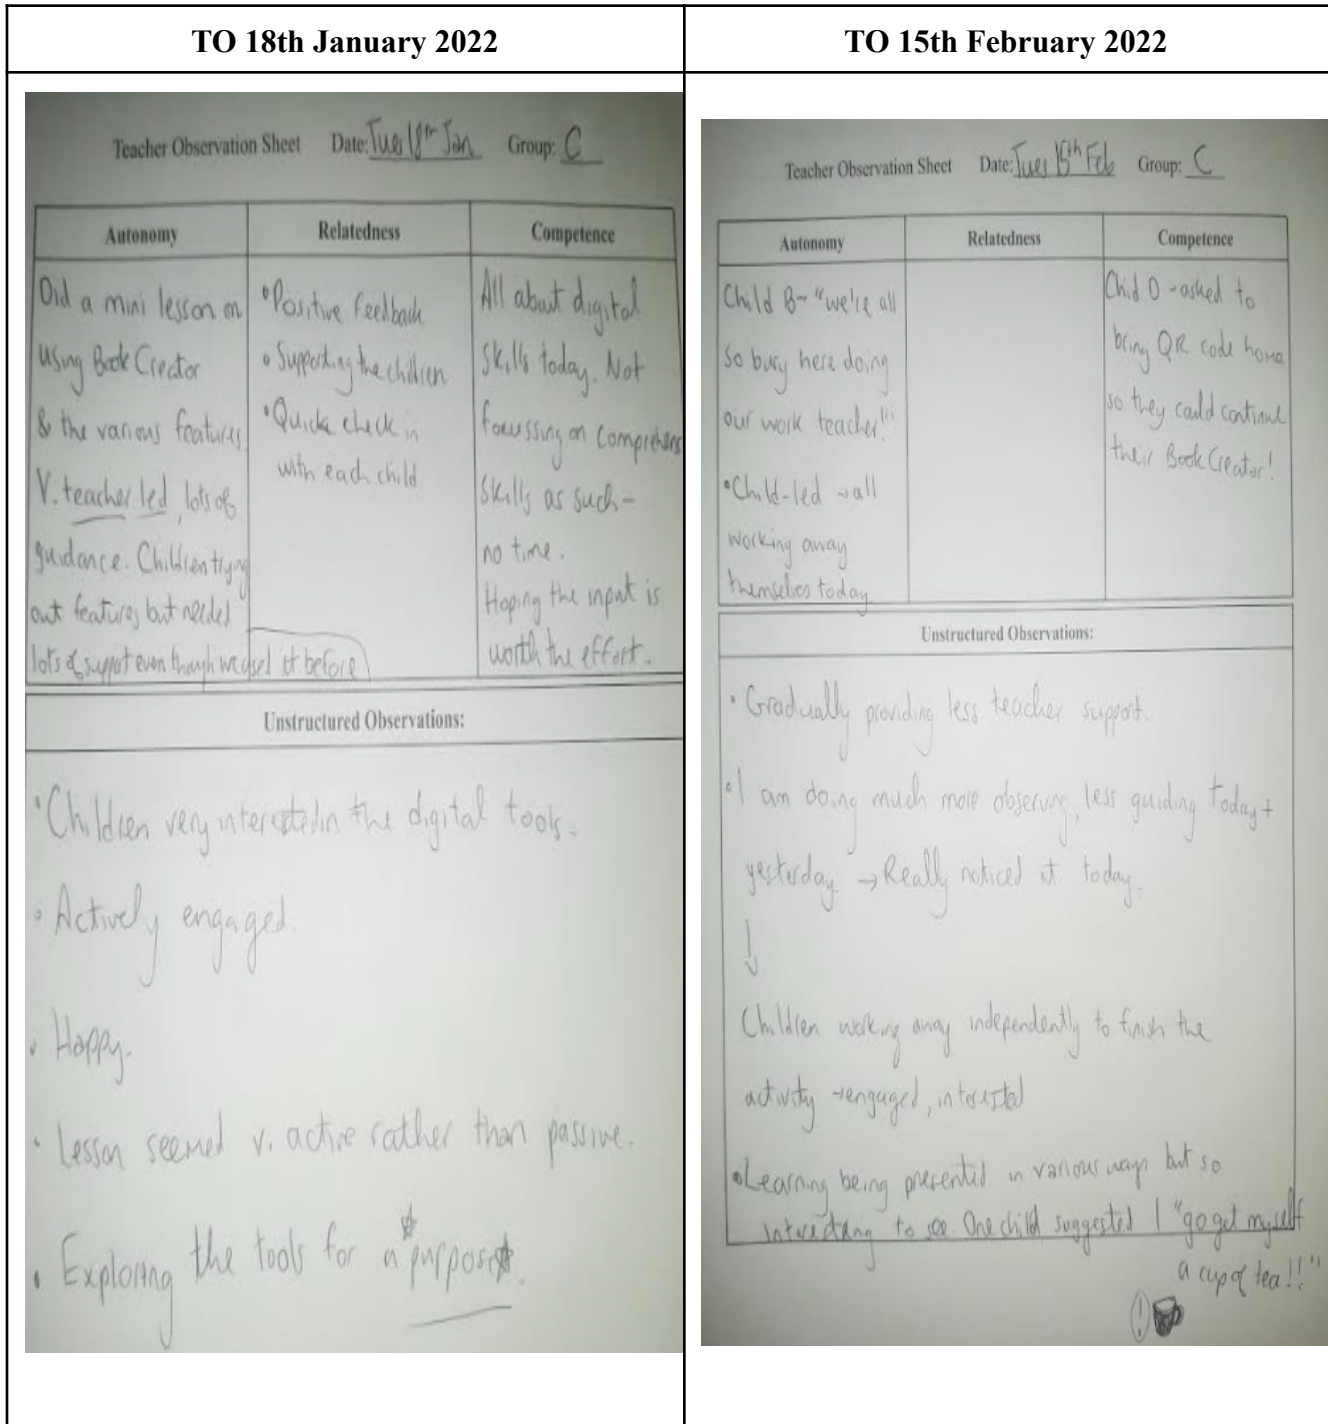 TO 18th January 2022
TO 15th February 2022
Teacher Observation Sheet Date: Tues 18th Jan Group: C
Autonomy
Did a mini lesson on
using Book Creator
& the various features.
V. teacher led, lots of
guidance. Children trying
out features but needed
lots of support even though we used it before
Relatedness
• Positive Feedback
• Supporting the children
• Quick check in
with each child
Competence
All about digital
skills today. Not
focussing on Comprehens
skills as such -
no time.
Hoping the input is
worth the effort.
Unstructured Observations:
• Children very interested in the digital tools.
• Actively engaged.
• Happy.
• Lesson seemed v. active rather than passive.
• Exploring the tools for a *purpose*.
Teacher Observation Sheet Date: Tues 15th Feb Group: C
Autonomy
Child B - "we're all
so busy here doing
our work teacher!"
• Child-led → all
working away
themselves today.
Relatedness
Competence
Child D - asked to
bring QR code home
so they could continue
their Book Creator!
Unstructured Observations:
• Gradually providing less teacher support.
• I am doing much more observing, less guiding today +
yesterday. → Really noticed it today.
↓
Children working away independently to finish the
activity → engaged, interested
• Learning being presented in various ways but so
interesting to see. One child suggested I "go get myself
a cup of tea!!"
(!)